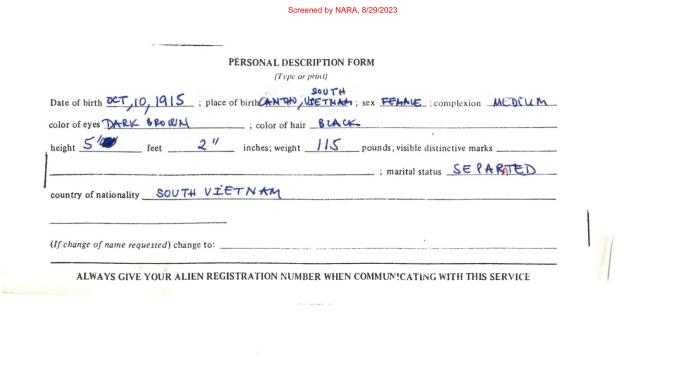 Screened by NARA, 8/29/2023
PERSONAL DESCRIPTION FORM
(Type or print)
SOUTH
Date of birth OCT, 10, 1915 ; place of birth CANTHO, VIETNAM ; sex FEMALE ; complexion MEDIUM
color of eyes DARK BROWN ; color of hair BLACK
height 5' feet 2" inches; weight 115 pounds; visible distinctive marks
; marital status SEPARATED
country of nationality SOUTH VIETNAM
(If change of name requested) change to:
ALWAYS GIVE YOUR ALIEN REGISTRATION NUMBER WHEN COMMUNICATING WITH THIS SERVICE